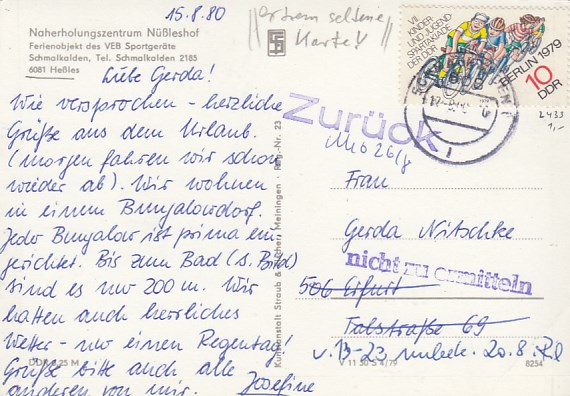 15.8.80
Naherholungszentrum Nüßleshof
Ferienobjekt des VEB Sportgeräte
Schmalkalden, Tel. Schmalkalden 2185
6081 Heßles
Liebe Gerda!
Wie versprochen - herzliche
Grüße aus dem Urlaub.
(morgen fahren wir schon
wieder ab). Wir wohnen
in einem Bungalowdorf.
Jeder Bungalow ist prima ein-
gerichtet. Bis zum Bad (s. Bild)
sind es nur 200 m. Wir
hatten auch herrliches
Wetter - nur einen Regentag!
Grüße bitte auch alle
anderen von mir. Josefine
DDR 0,25 M
Kunstanstalt Straub & Fischer, Meiningen Reg.-Nr. 23
extrem seltene
Karte!
VII.
KINDER
UND JUGEND
SPARTAKIADE
DER DDR
BERLIN 1979
10
DDR
2433
1,-
Zurück
Frau
Gerda Nitschke
nicht zu ermitteln
506 Erfurt
Talstraße 69
v. 13-23 20.8.
V 11 50 S 4/79
8254